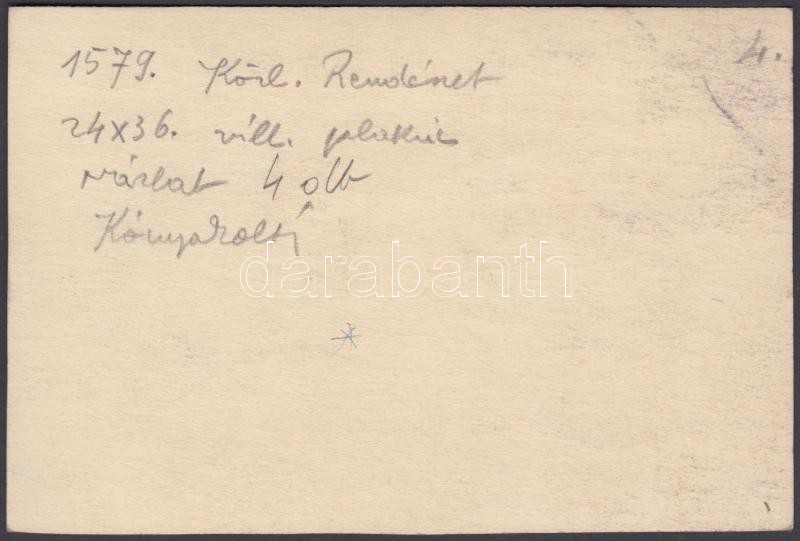 4.
1579. Közl. Rendészet
24x36. vill. plakát
vázlat 4 db
Kónya Zoltán
darabanth